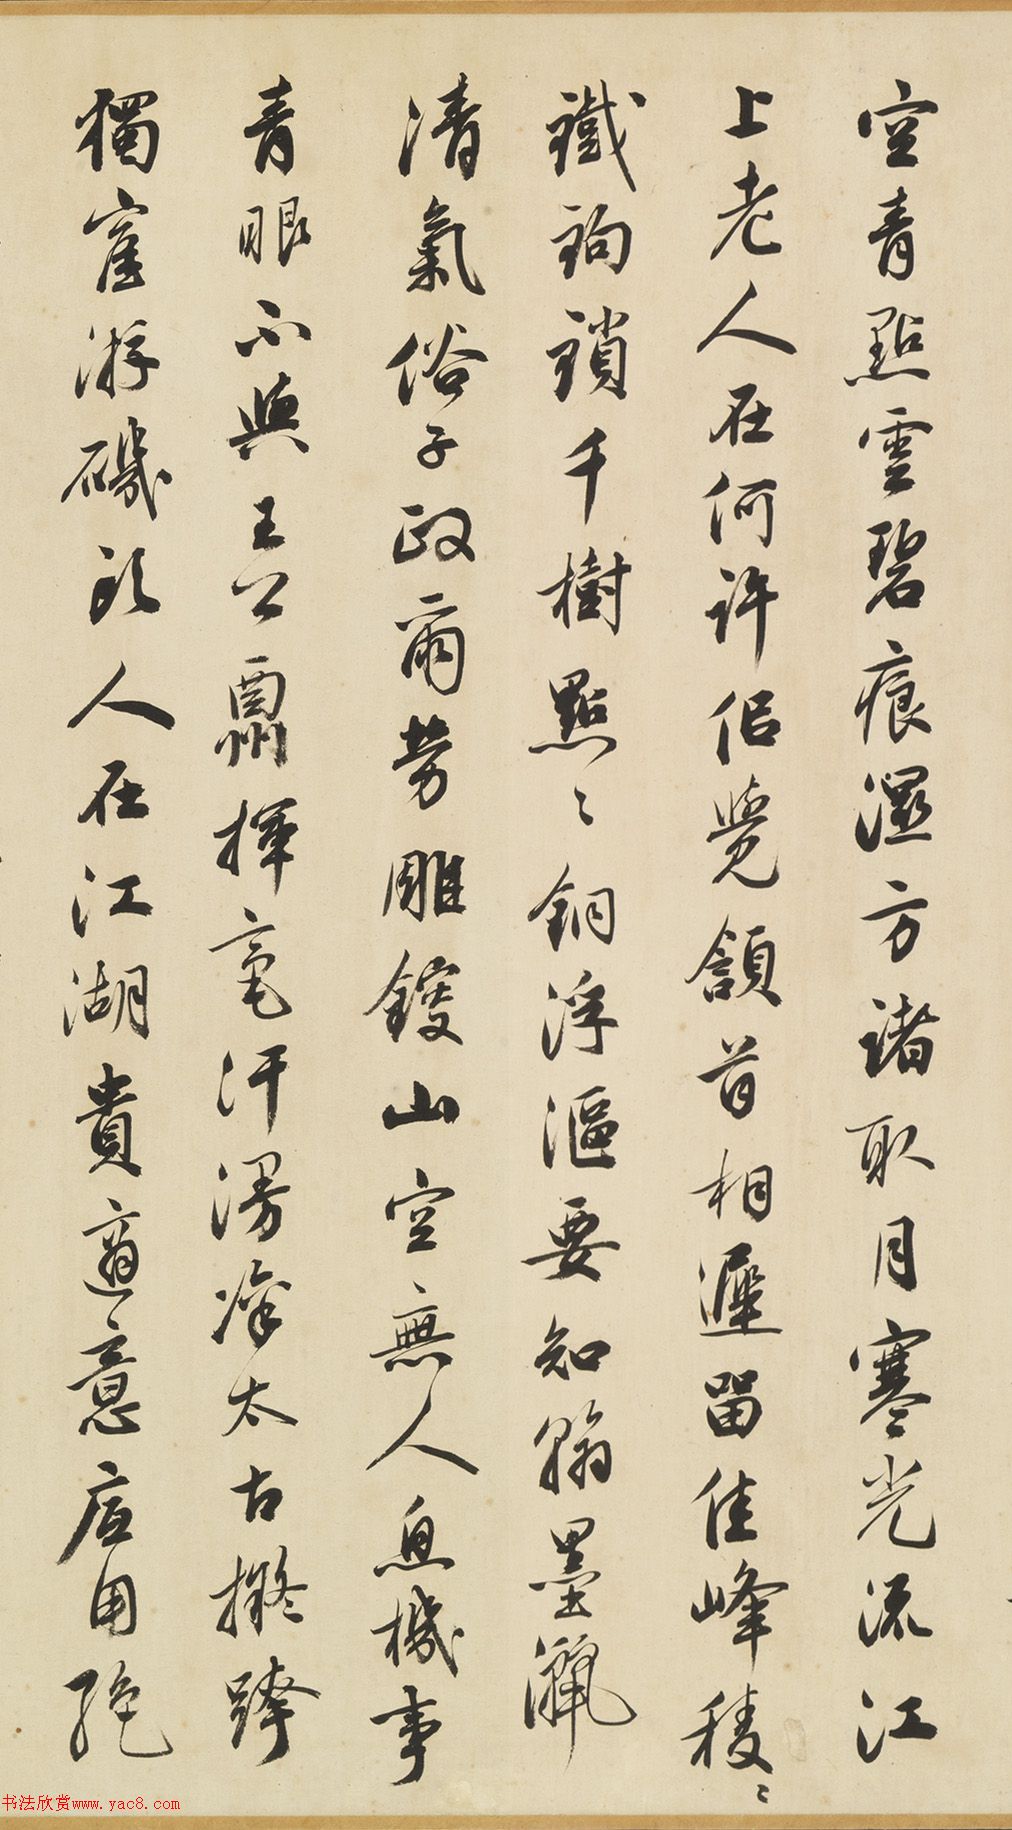 空青點雲碧痕濕方諸取月寒光流江
上老人在何許佀覺頷首相遲留佳峰稜〻
鐵鉤鎖千樹點〻銅浮漚要知翰墨灑
清氣俗子政爾勞雕鎪山空無人息機事
青眼不與王公酬揮毫汗漫凌太古擬跨
獨鶴游磯頭人在江湖貴適意底用絕
书法欣赏www.yac8.com